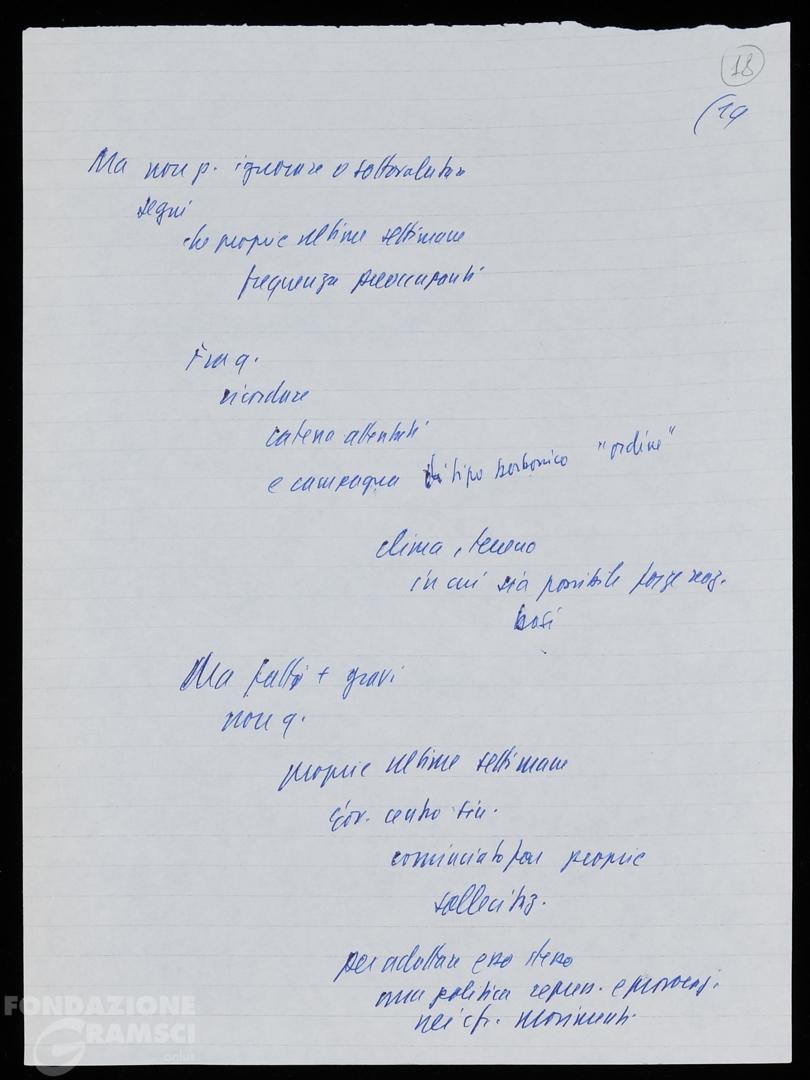 18
(19
Ma non p. ignorare o sottovalutare
segni
che proprie ultime settimane
frequenza preoccupanti
Fra q.
ricordare
catena attentati
e campagna di tipo borbonico "ordine"
clima, terreno
in cui sia possibile forze reaz.
Ma fatti + gravi
non q.
proprie ultime settimane
gov. centro sin.
cominciato far proprie
sollecitaz.
per adottare esso stesso
una politica repress. e provocaz.
nei cfr. movimenti.
FONDAZIONE
GRAMSCI
onlus